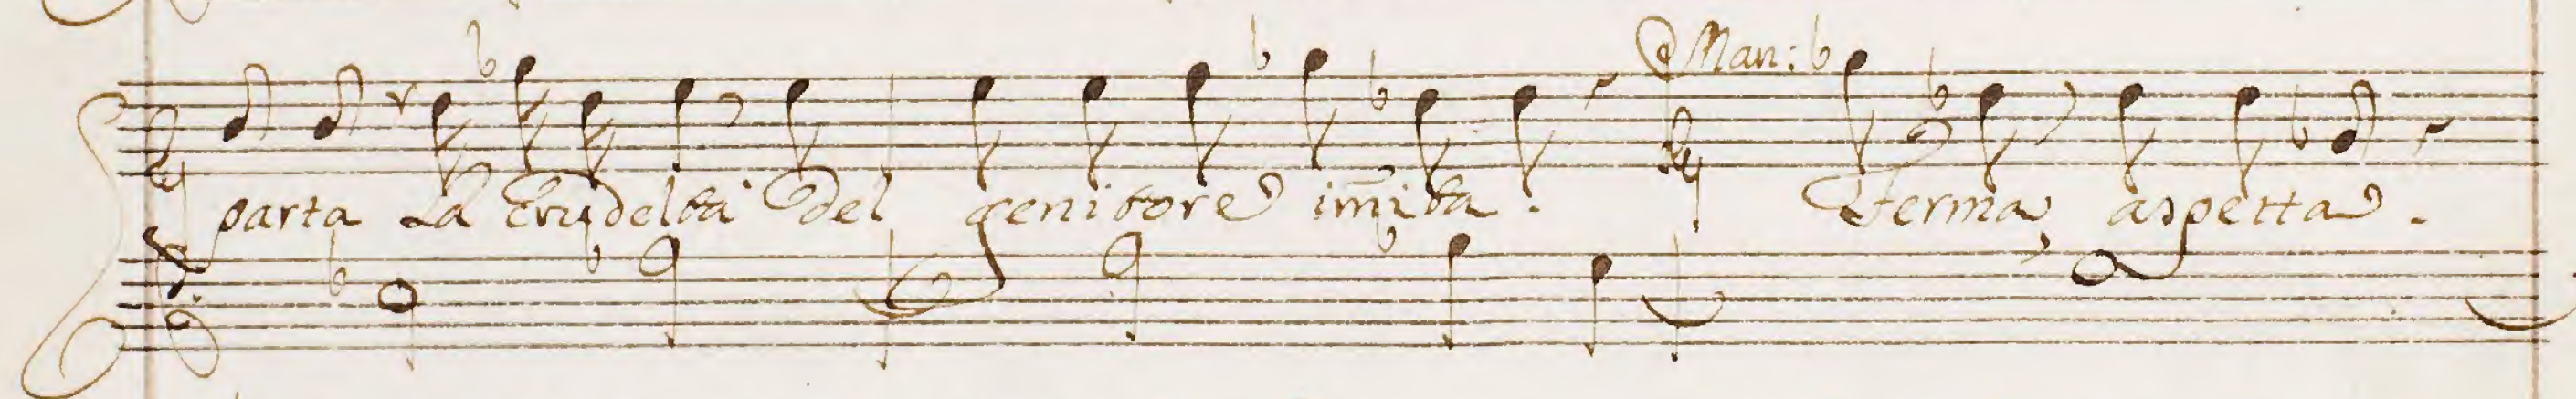 Man:
parta La Crudeltà del genitore im̄ita. Ferma aspetta.